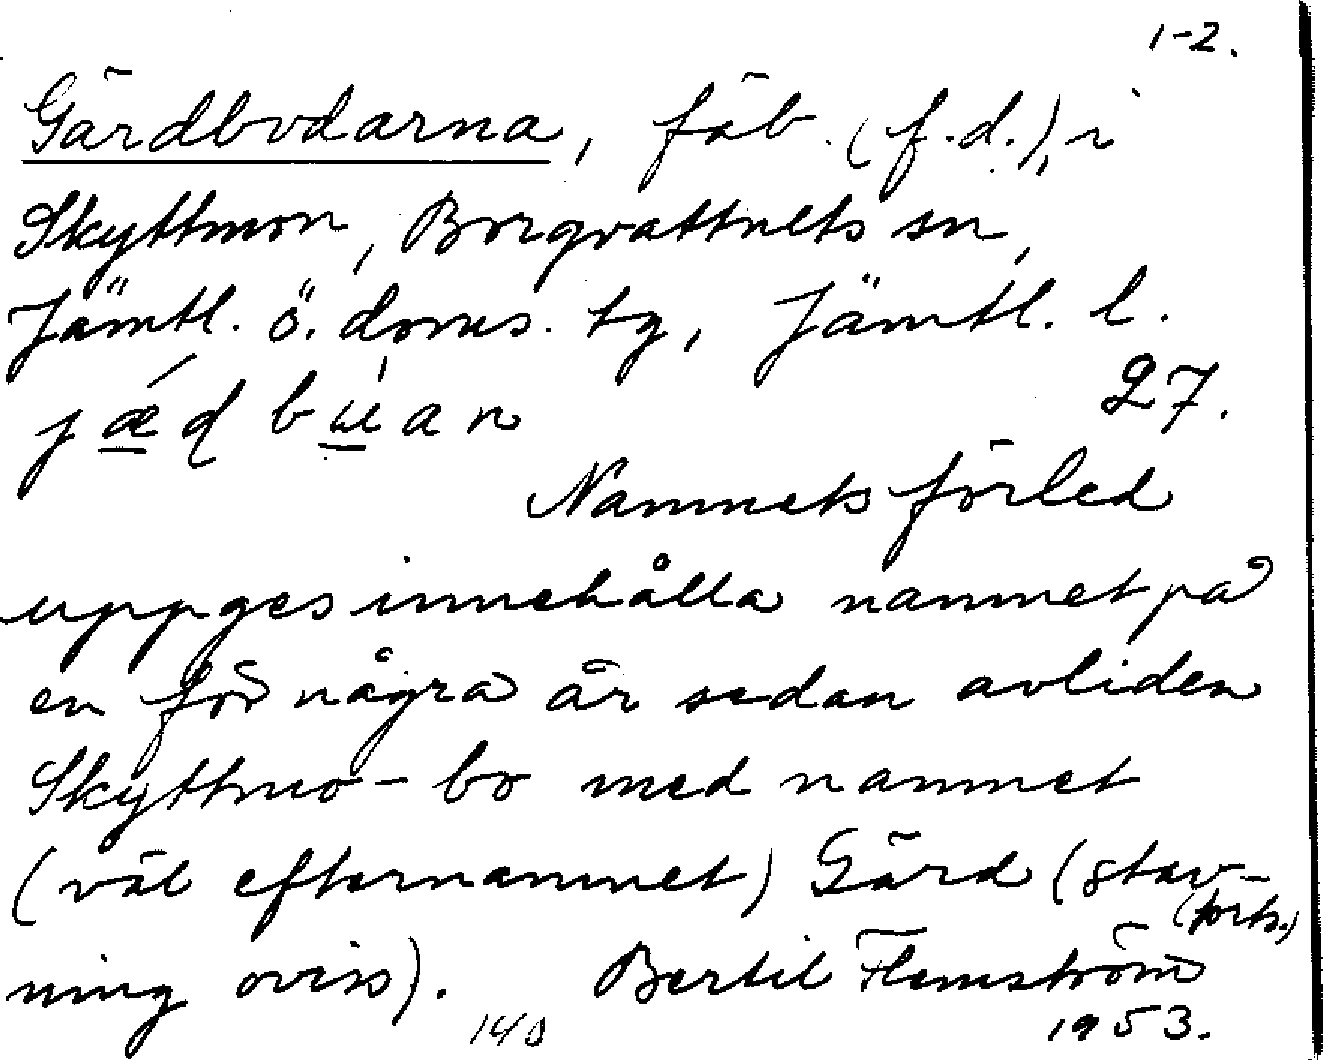 1-2.
Gärdbodarna, fäb. (f.d.), i
Skyttmon, Borgvattnets sn,
Jämtl. ö. doms. tg, Jämtl. l.
jǽd búan 27.
Namnets förled
uppges innehålla namnet på
en för några år sedan avliden
Skyttmo-bo med namnet
(väl efternamnet) Gärd (stav-
(forts.)
ning oviss). Bertil Flemström
140 1953.